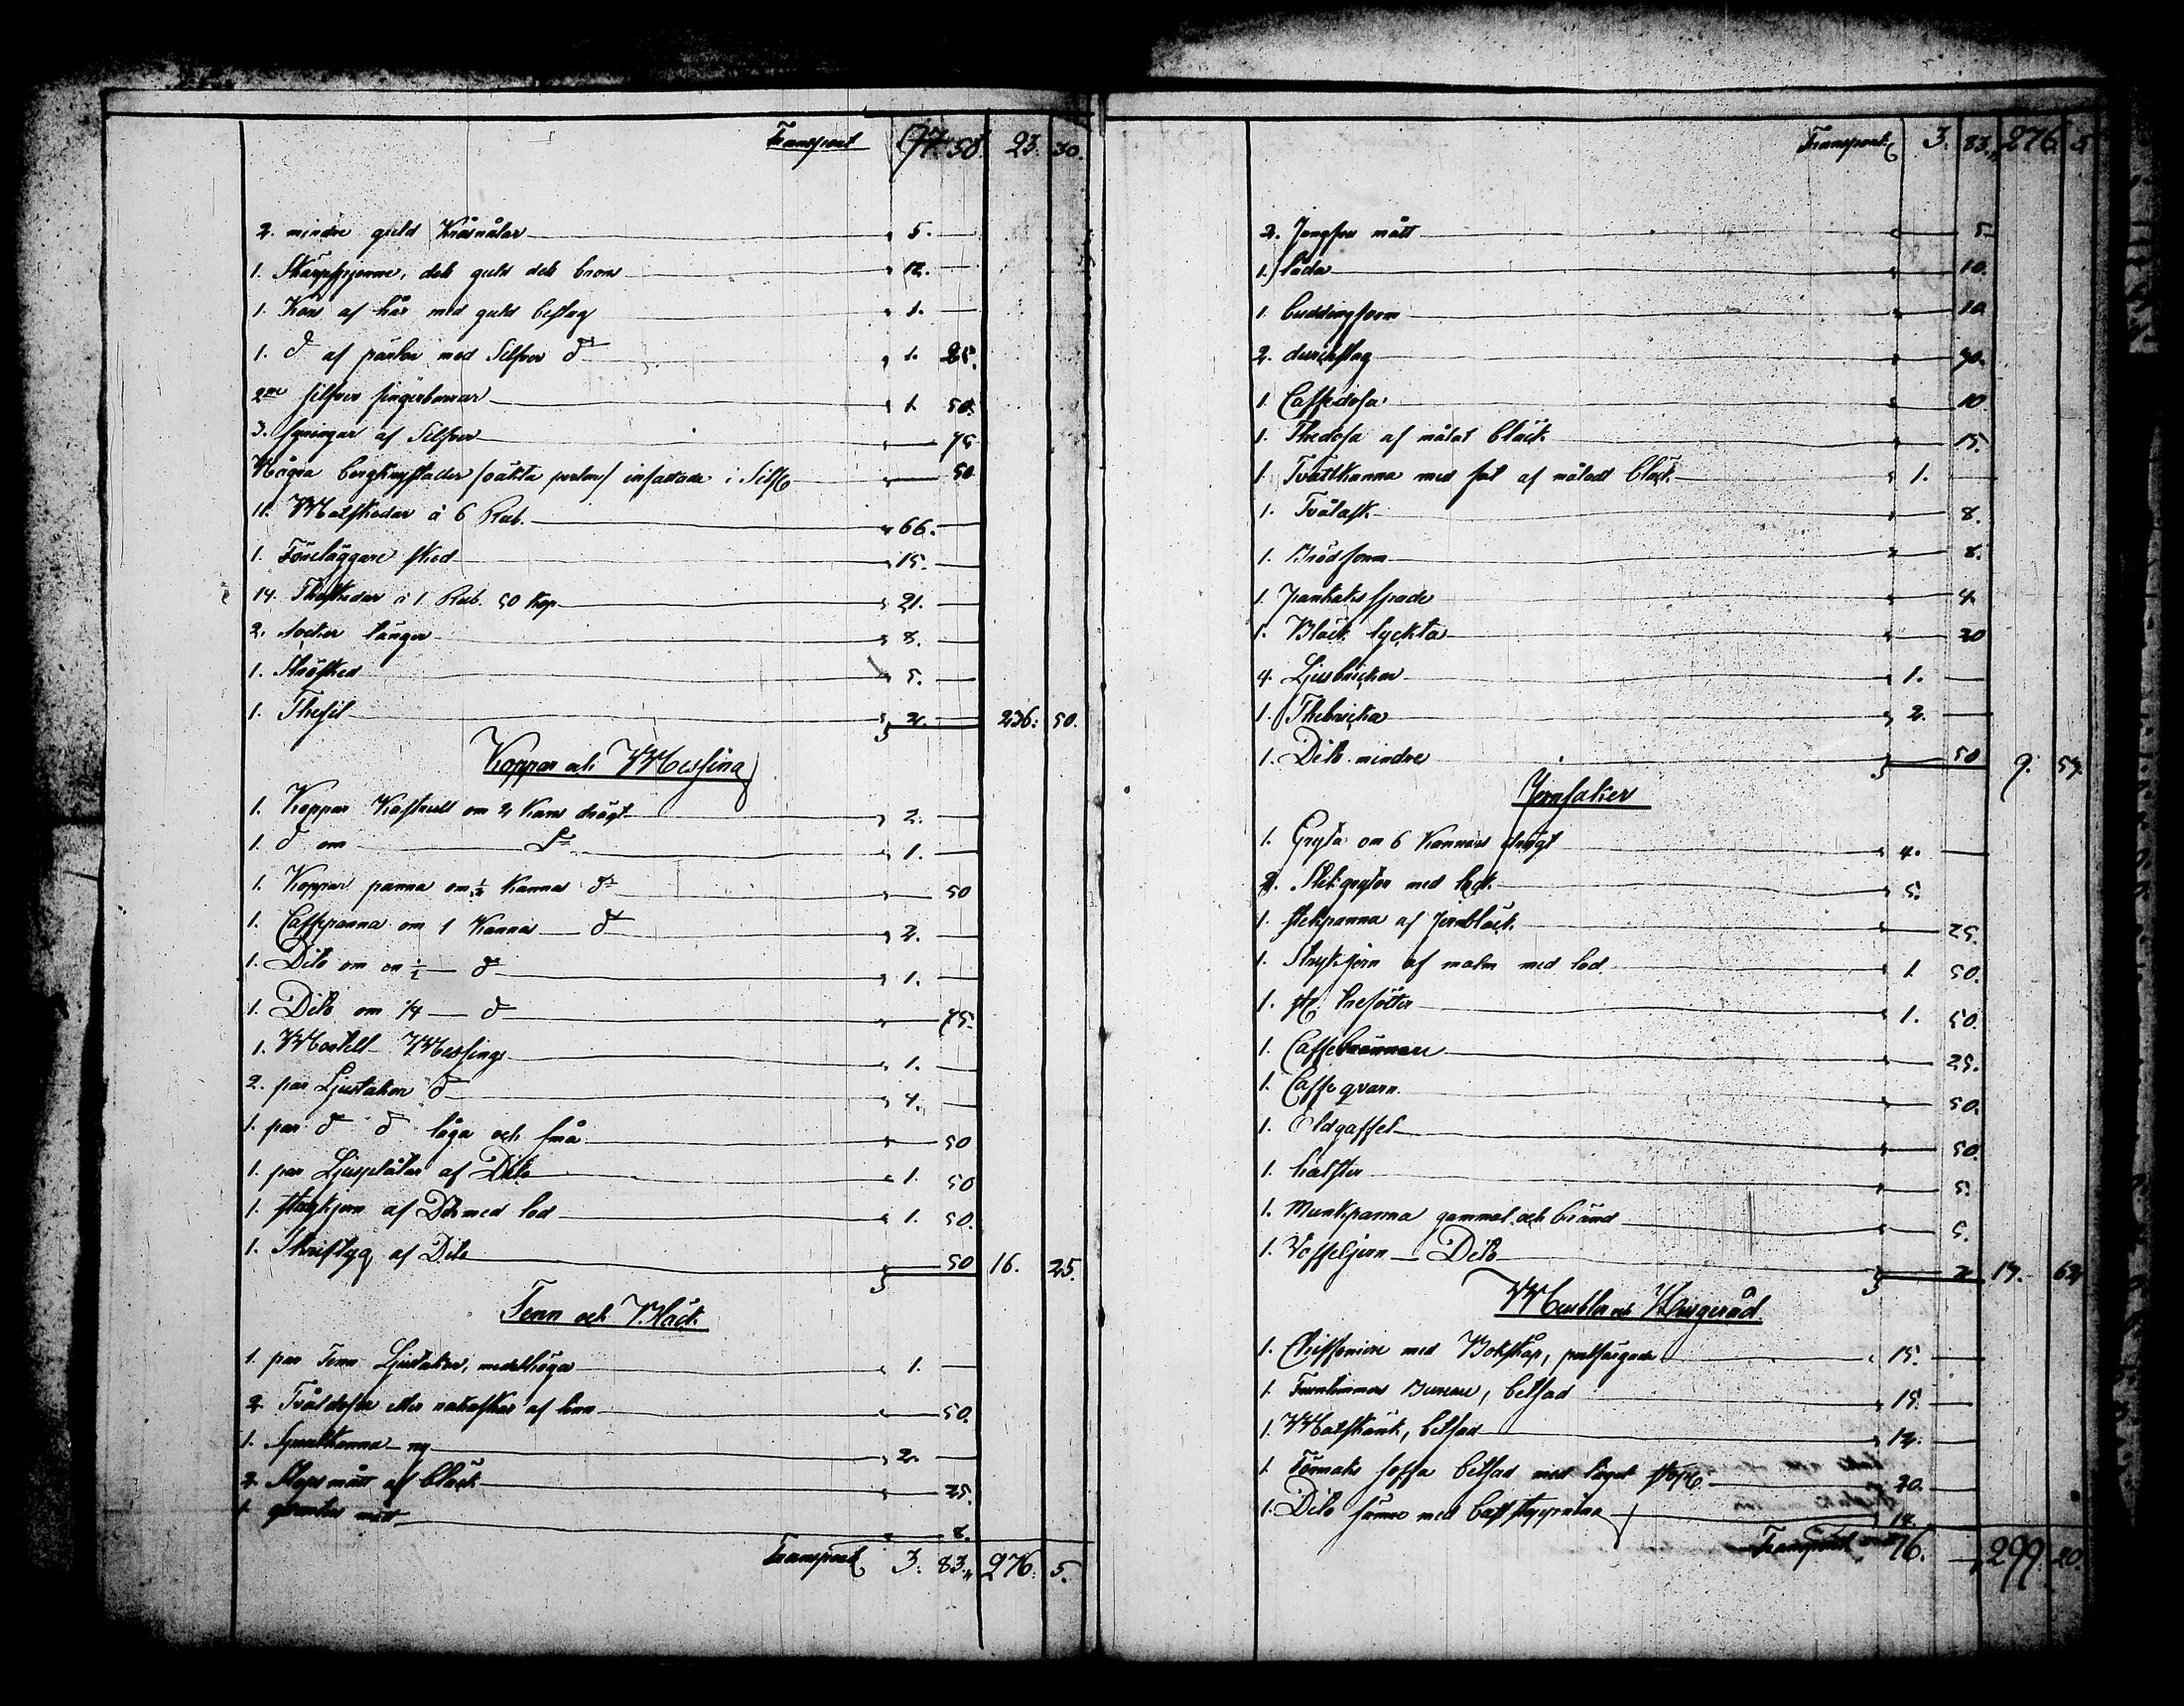 Transport 97. 50. 23. 30.
2. mindre guld Kråsnålar 5.
1. Skärpspenne, dels guld dels brons 12.
1. Kors af hår med guld beslag 1.
1. d:o af pärlor med Silfver d:o 1. 25.
2ne silfver fingerborrar 1. 50.
3. syringar af Silfver 75
Några bergkrystaller (oäkta perlor) infattade i Silf. 50
11. Matskedar á 6 Rub. 66.
1. Föreläggare sked 15.
14. Theskedar á 1 Rub. 50 kop. 21.
2. socker tänger 8.
1. Ströslked 5.
1. Thesil 2. 236. 50.
Koppar och Messing
1. Koppar Kastrull om 2 Kans drägt 2.
1. d:o om d:o 1.
1. Koppar panna om ½ Kannas d:o 50
1. Caffepanna om 1 Kannas d:o 2.
1. Dito om en ½ d:o 1.
1. Dito om 1/4 d:o 75.
1. Mortell Messings 1.
2. par Ljustakar d:o 4.
1. par d:o d:o låga och små 50
1. par Ljusplåtar af Dito 1. 50
1. strykjern af Dito med lod 1. 50.
1. Skriftyg af Dito 50 16. 25.
Tenn och Bläck
1. par Tenn Ljustakar, medelhöga 1.
2. Tvåldosor eller rakaskar af tenn 50.
1. Spurlkanna ny 2.
2. Stops mått af bläck 25.
1. qvarters mått 8.
Transport 3. 83. 276. 5.
Transport 3. 83. 276. 5
2. Jungfru mått 5
1. låda 10.
1. buddingsform 10
2. durchslag 30.
1. Caffedosa 10
1. Thedosa af målat bläck 15.
1. Tvättkanna med fat af måladt bläck 1.
1. Tvålask 8.
1. Brödform 8.
1. pankaks spade 4.
1. Bläck lyckta 20
4. Ljusbrickor 1.
1. Thebricka 2.
1. Dito mindre 50 9. 53.
Jernsaker
1. Gryta om 6 Kannors drägt 4.
2. Stekgrytor med lock 5.
1. stekpanna af Jernbläck 25.
1. Strykjern af malm med lod 1. 50.
1. st. trefötter 1. 50.
1. Caffebrännare 25.
1. Caffe qvarn 50.
1. Eldgaffel 50.
1. halster 5.
1. Munkpanna gammal och bränd 5.
1. Voffeljern Dito 2 13. 62
Meubler och Husgeråd
1. Chiffoniere med Bokskåp, perlfärgade 15.
1. Fruntimmers Bureau, betsad 15.
1. Matskänk, betsad 12.
1. Förmaks soffa betsad med tagel stopp. 20.
1. Dito sämre med bast stoppning 14.
Transport 76. 299. 20.